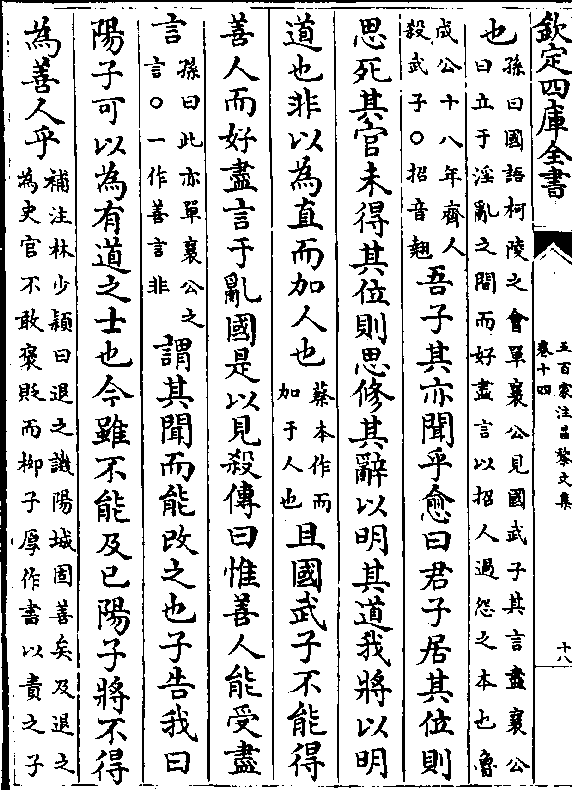 欽定四庫全書
五百家注昌黎文集
卷十四
十八
也孫曰國語柯陵之會單襄公見國武子其言盡襄公
曰立于淫亂之間而好盡言以招人過怨之本也魯
成公十八年齊人
殺武子○招音翹
吾子其亦聞乎愈曰君子居其位則
思死其官未得其位則思修其辭以明其道我將以明
道也非以為直而加人也蔡本作而
加于人也
且國武子不能得
善人而好盡言于亂國是以見殺傳曰惟善人能受盡
言孫曰此亦單襄公之
言○一作善言非
謂其聞而能改之也子告我曰
陽子可以為有道之士也今雖不能及已陽子將不得
為善人乎補注林少穎曰退之譏陽城固善矣及退之
為史官不敢褒貶而柳子厚作書以責之子